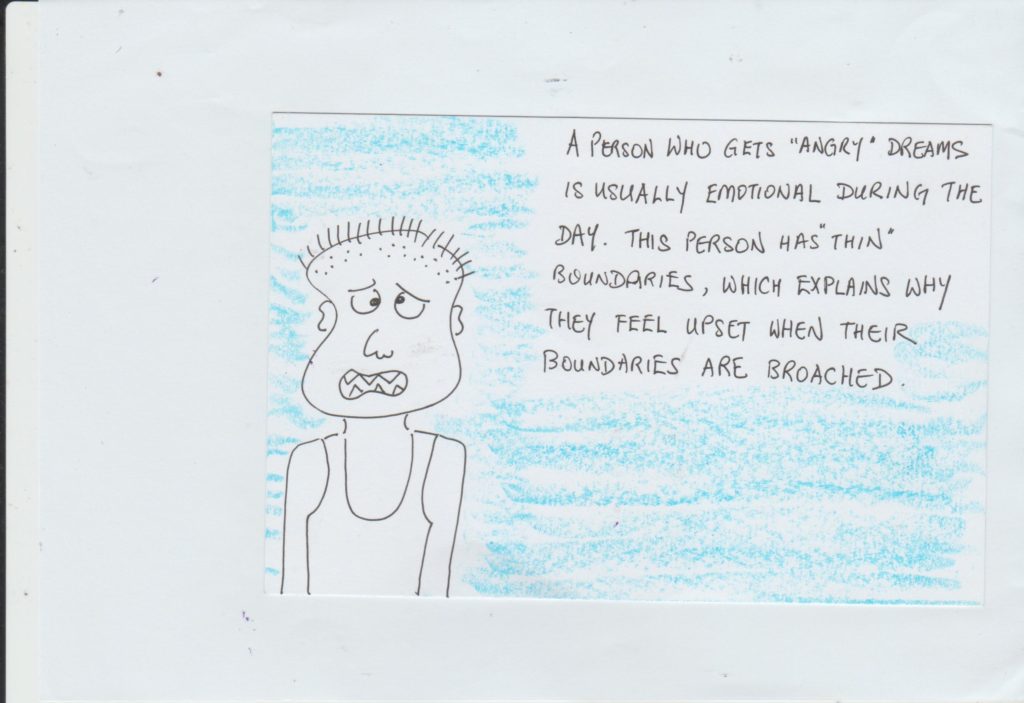 A PERSON WHO GETS "ANGRY" DREAMS
IS USUALLY EMOTIONAL DURING THE
DAY. THIS PERSON HAS "THIN"
BOUNDARIES, WHICH EXPLAINS WHY
THEY FEEL UPSET WHEN THEIR
BOUNDARIES ARE BROACHED.